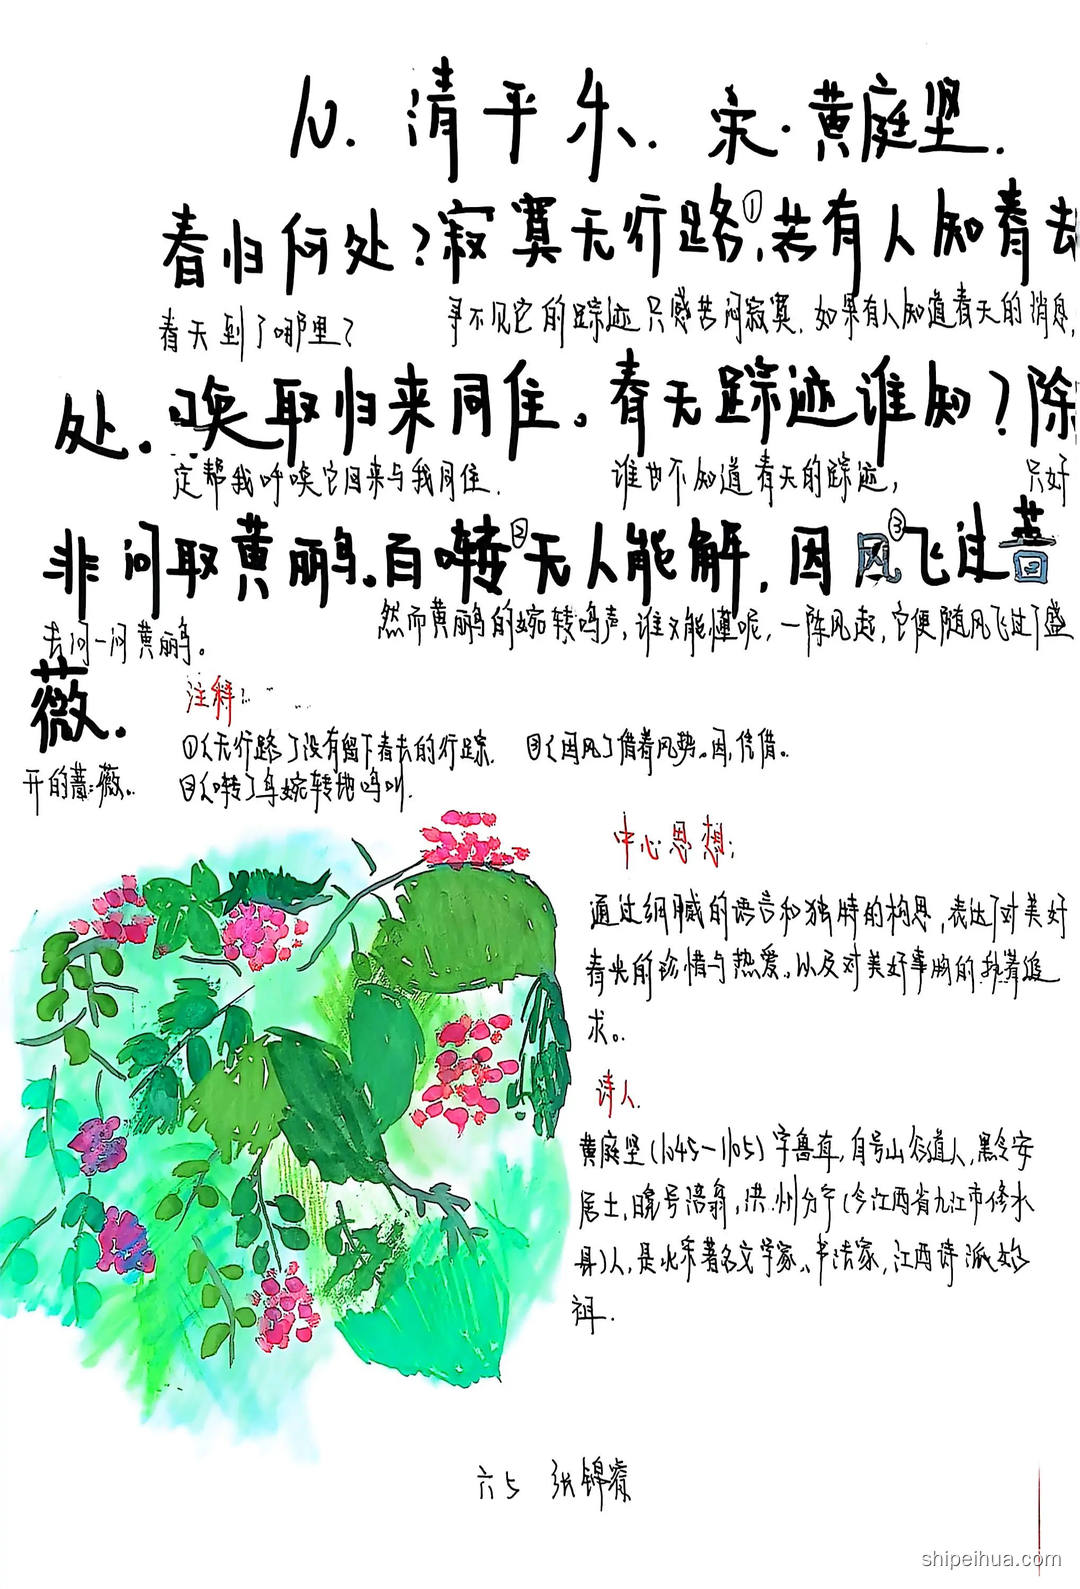 10. 清平乐. 宋·黄庭坚.
春归何处?寂寞无行路①,若有人知春去
春天到了哪里? 寻不见它的踪迹只感苦闷寂寞. 如果有人知道春天的消息,
处.唤取归来同住。春无踪迹谁知?除
定帮我呼唤它回来与我同住. 谁也不知道春天的踪迹, 只好
非问取黄鹂。百啭②无人能解,因风③飞过蔷
去问一问黄鹂。 然而黄鹂的婉转鸣声,谁又能懂呢,一阵风起,它便随风飞过了盛
薇.
注释:
①〈无行路〉没有留下春去的行踪. ③〈因风〉借着风势。因,凭借。
开的蔷薇。 ②〈啭〉鸟婉转地鸣叫.
中心思想:
通过细腻的语言和独特的构思,表达了对美好
春光的珍惜与热爱。以及对美好事物的执着追
求。
诗人.
黄庭坚(1045-1105)字鲁直,自号山谷道人,黑令安
居士,晚号涪翁,洪州分宁(今江西省九江市修水
县)人,是北宋著名文学家、书法家,江西诗派始
祖.
六5 张锦睿
shipeihua.com